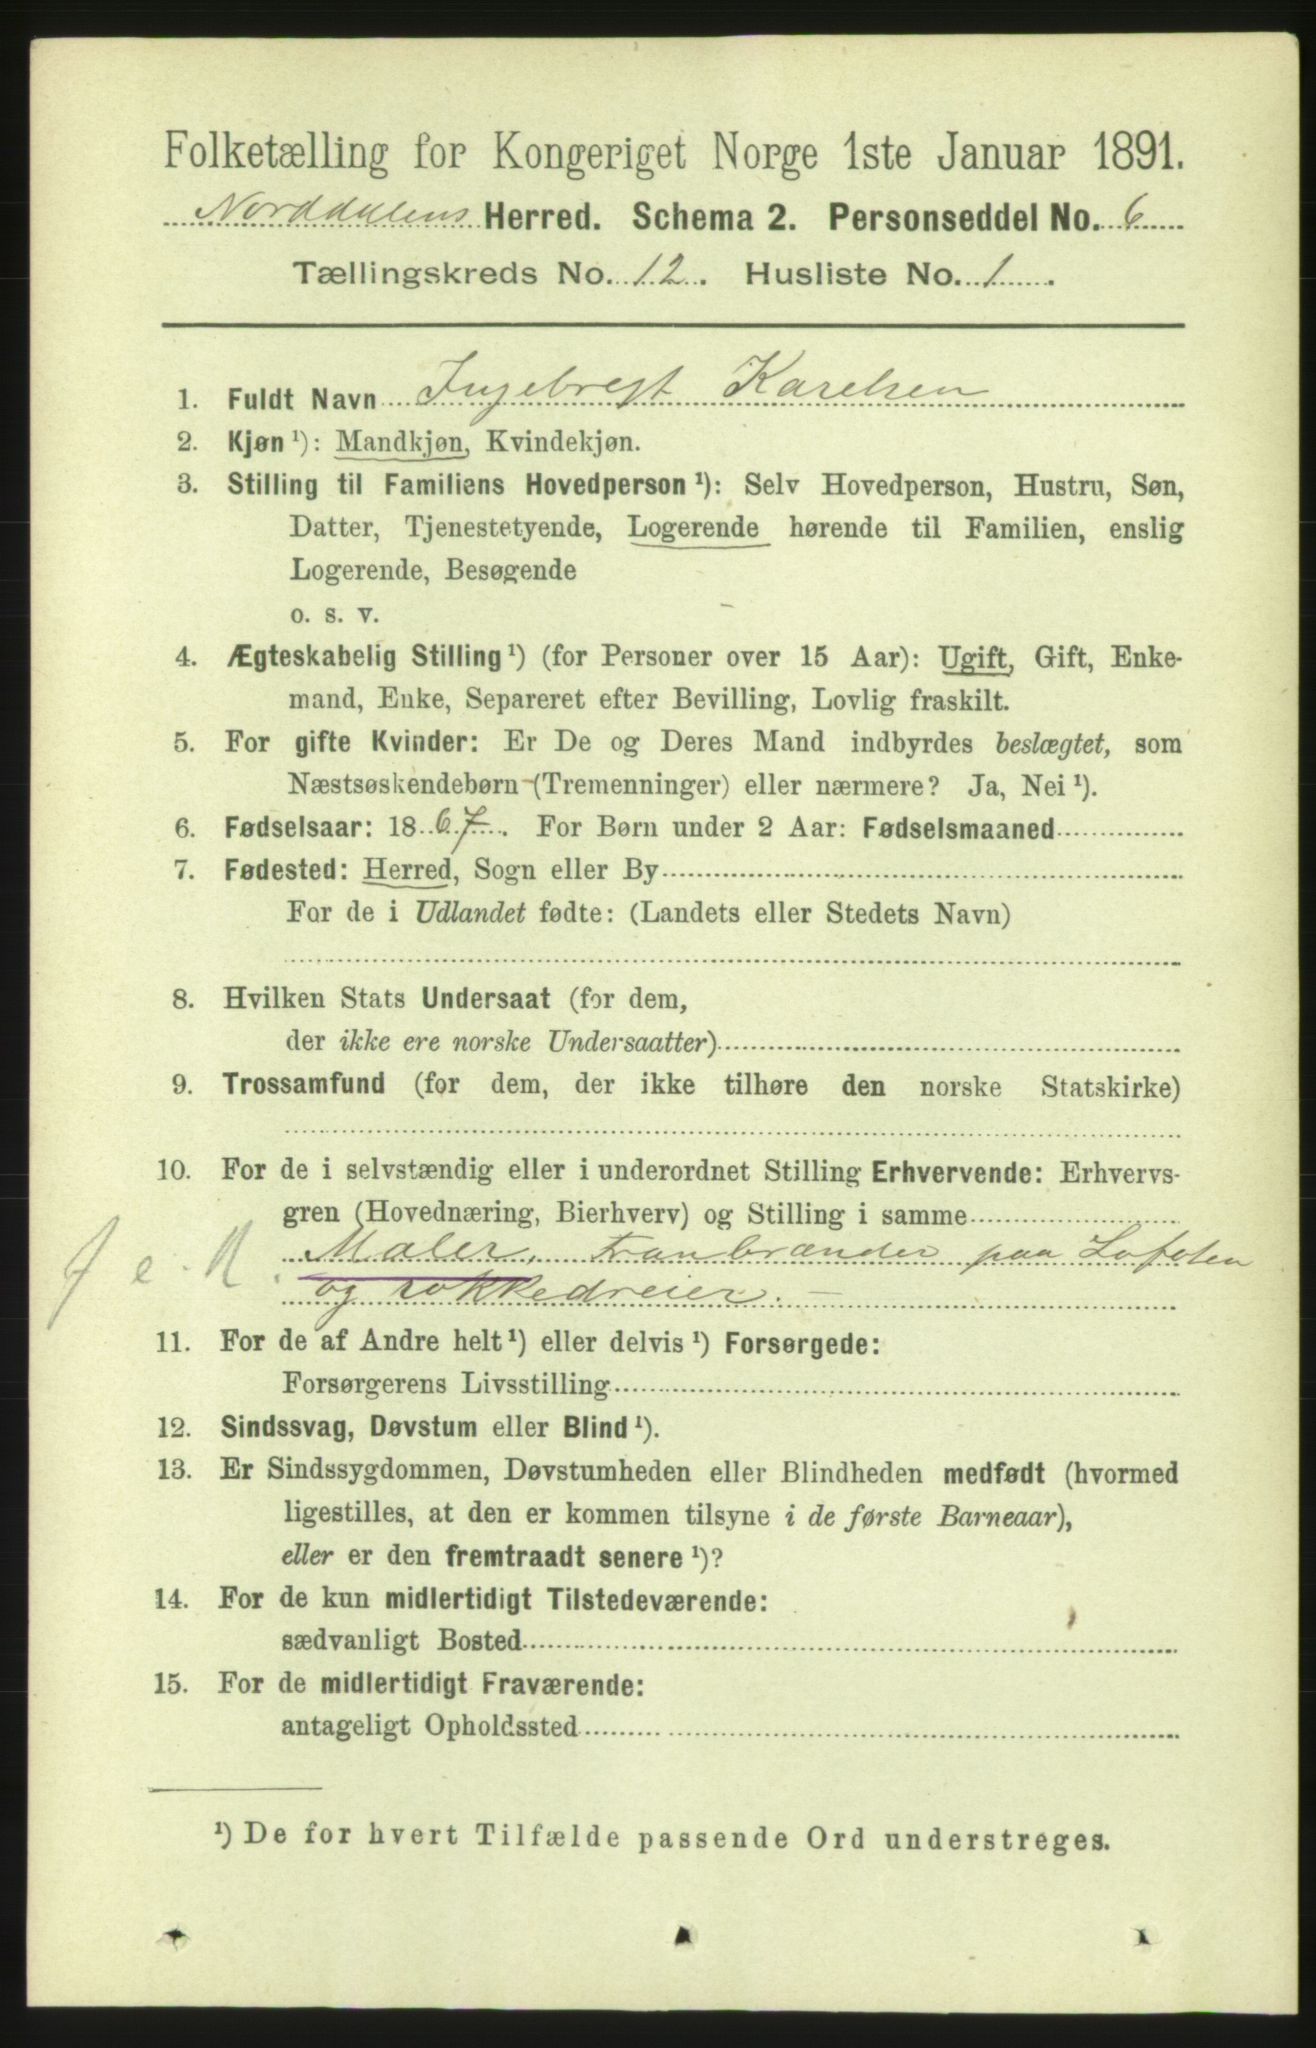 Folketælling for Kongeriget Norge 1ste Januar 1891.
Norddalens Herred. Schema 2. Personseddel No. 6
Tællingskreds No. 12. Husliste No. 1.
1. Fuldt Navn Ingebregt Karelsen
2. Kjøn ¹): Mandkjøn, Kvindekjøn.
3. Stilling til Familiens Hovedperson ¹): Selv Hovedperson, Hustru, Søn,
Datter, Tjenestetyende, Logerende hørende til Familien, enslig
Logerende, Besøgende
o. s. v.
4. Ægteskabelig Stilling ¹) (for Personer over 15 Aar): Ugift, Gift, Enke-
mand, Enke, Separeret efter Bevilling, Lovlig fraskilt.
5. For gifte Kvinder: Er De og Deres Mand indbyrdes beslægtet, som
Næstsøskendebørn (Tremenninger) eller nærmere? Ja, Nei ¹).
6. Fødselsaar: 1867. For Børn under 2 Aar: Fødselsmaaned
7. Fødested: Herred, Sogn eller By
For de i Udlandet fødte: (Landets eller Stedets Navn)
8. Hvilken Stats Undersaat (for dem,
der ikke ere norske Undersaatter)
9. Trossamfund (for dem, der ikke tilhøre den norske Statskirke)
10. For de i selvstændig eller i underordnet Stilling Erhvervende: Erhvervs-
gren (Hovednæring, Bierhverv) og Stilling i samme
Maler, tranbrænder paa Lofoten
og rokkedreier. —
11. For de af Andre helt ¹) eller delvis ¹) Forsørgede:
Forsørgerens Livsstilling
12. Sindssvag, Døvstum eller Blind ¹).
13. Er Sindssygdommen, Døvstumheden eller Blindheden medfødt (hvormed
ligestilles, at den er kommen tilsyne i de første Barneaar),
eller er den fremtraadt senere ¹)?
14. For de kun midlertidigt Tilstedeværende:
sædvanligt Bosted
15. For de midlertidigt Fraværende:
antageligt Opholdssted
¹) De for hvert Tilfælde passende Ord understreges.